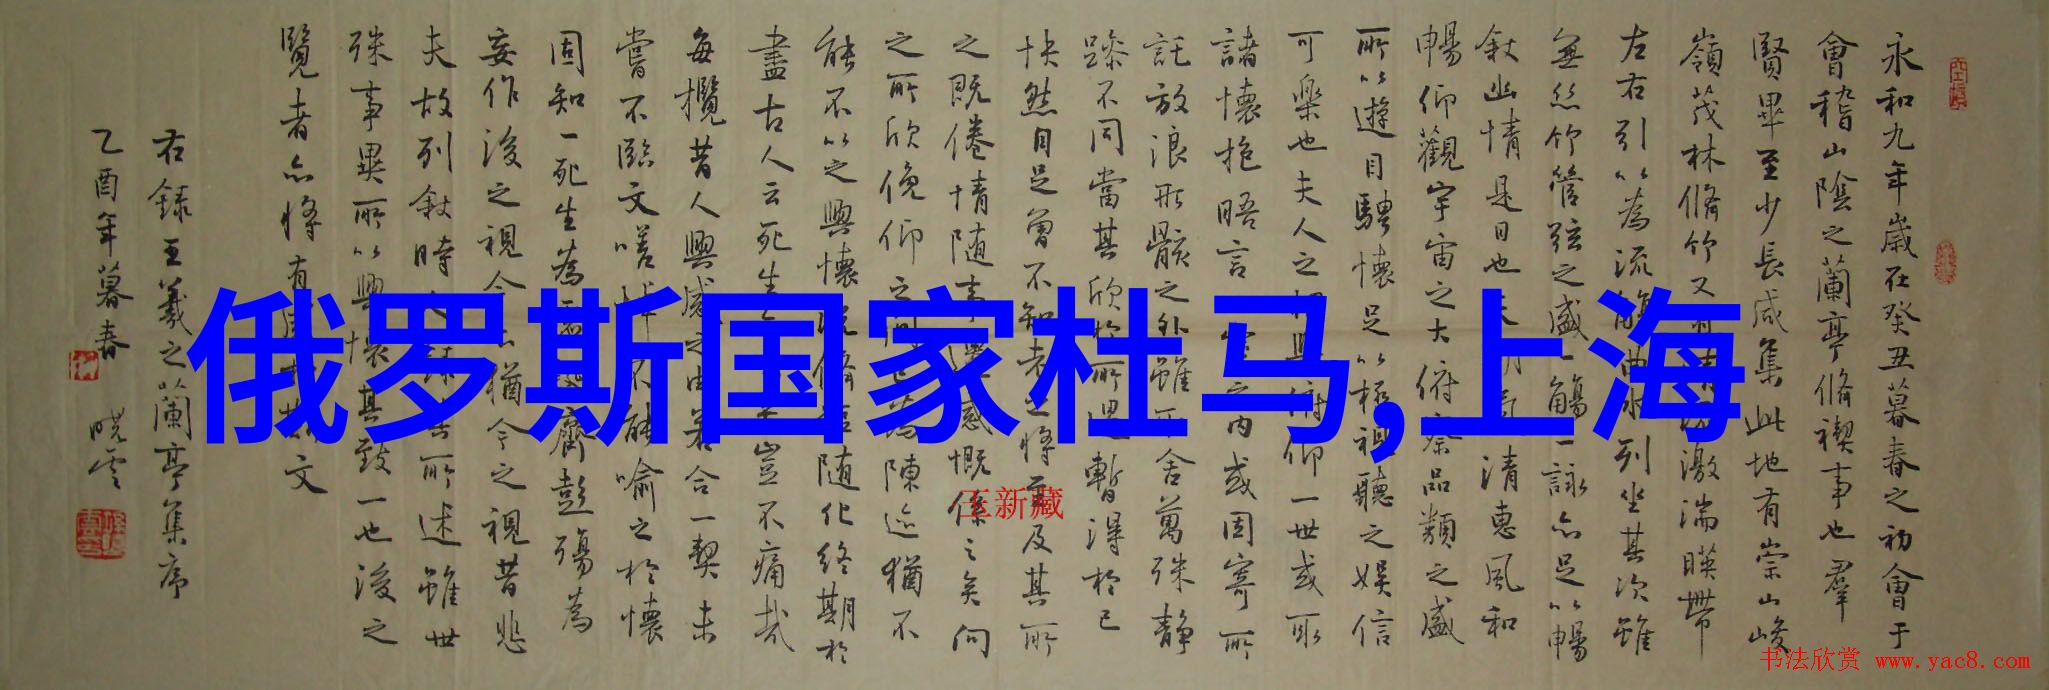 永和九年歲在癸丑暮春之初會于
會稽山陰之蘭亭脩禊事也羣
賢畢至少長咸集此地有崇山峻
嶺茂林脩竹又有清流激湍暎帶
左右引以為流觴曲水列坐其次雖
無絲竹管弦之盛一觴一詠亦足以暢
敘幽情是日也天朗氣清惠風和
暢仰觀宇宙之大俯察品類之盛
所以遊目騁懷足以極視聽之娛信
可樂也夫人之相與俯仰一世或取
諸懷抱晤言一室之内或因寄所
託放浪形骸之外雖不舍萬殊靜
躁不同當其欣於所遇暫得於己
快然自足曾不知老之將至及其所
之既倦情随事遷感慨係之矣向
之所欣俛仰之間以為陳迹猶不
能不以之興懷況脩短随化終期於
盡古人云死生亦大矣豈不痛哉
每攬昔人興感之由若合一契未
嘗不臨文嗟悼不能喻之於懷
固知一死生為虛誕齊彭殤為
妄作後之視今亦猶今之視昔悲
夫故列敘時人錄其所述雖世
殊事異所以興懷其致一也後之
覽者亦將有感於斯文
右錄王羲之蘭亭集序
乙酉年暮春
曉雲
俄罗斯国家杜马,上海
王新藏
书法欣赏 www.yac8.com